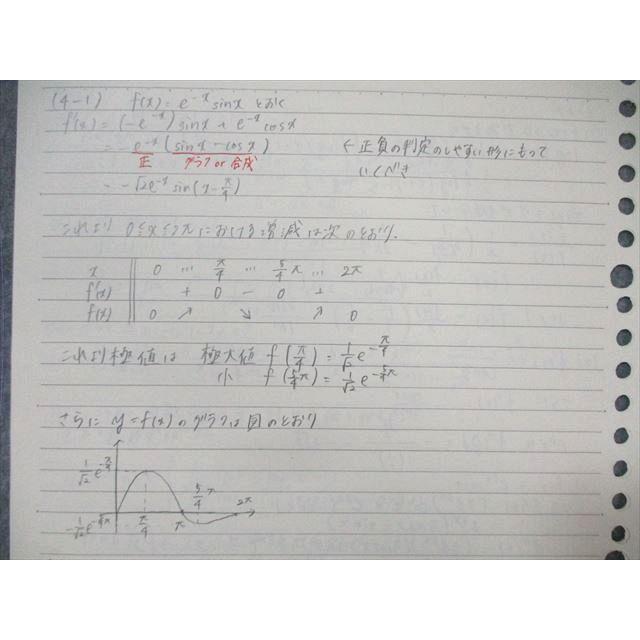 (4-1) f(x) = e^{-x} sinx とおく
f'(x) = (-e^{-x}) sinx + e^{-x} cosx
= -e^{-x} (sinx - cosx) ← 正負の判定のしやすい形にもって
正 グラフ or 合成 いくべき
= -√2 e^{-x} sin(x - π/4)
これより 0≦x≦2π における増減は次のとおり.
x 0 … π/4 … 5/4 π … 2π
f'(x) + 0 - 0 +
f(x) 0 ↗ ↘ ↗ 0
これより極値は 極大値 f(π/4) = 1/√2 e^{-π/4}
小 f(5/4 π) = 1/√2 e^{-5/4 π}
さらに y = f(x) のグラフは図のとおり
1/√2 e^{-π/4}
5/4 π
2π
-1/√2 e^{-5/4 π} π/4 π